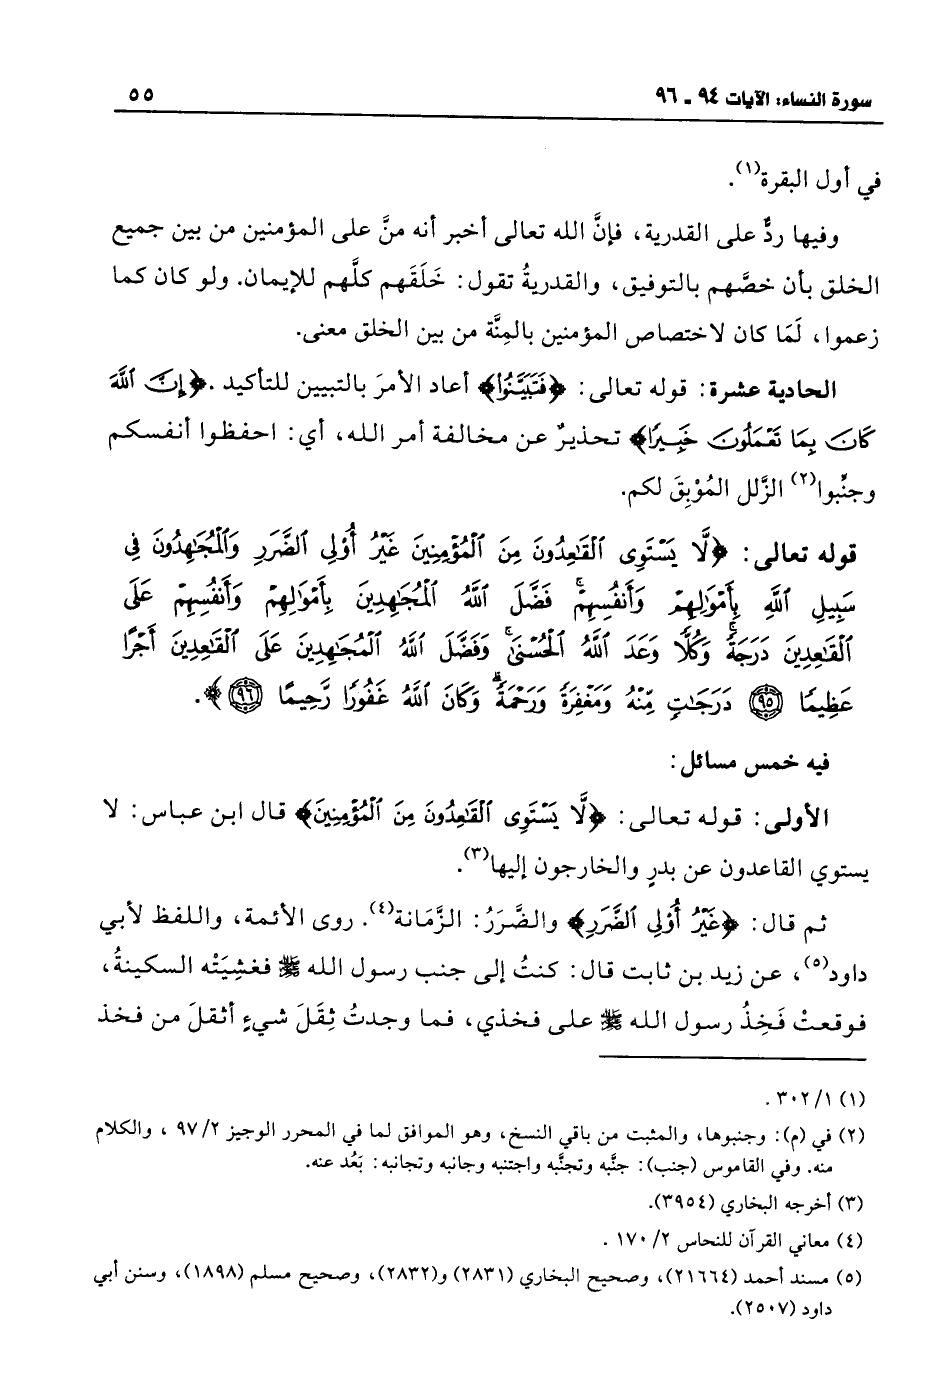 سورة النساء: الآيات ٩٤ - ٩٦
٥٥
في أول البقرة(١).
وفيها ردٌّ على القدرية، فإنَّ الله تعالى أخبر أنه منَّ على المؤمنين من بين جميع
الخلق بأن خصَّهم بالتوفيق، والقدريةُ تقول: خَلَقَهم كلَّهم للإيمان. ولو كان كما
زعموا، لَمَا كان لاختصاص المؤمنين بالمِنَّة من بين الخلق معنى.
الحادية عشرة: قوله تعالى: ﴿فَتَبَيَّنُوا﴾ أعاد الأمرَ بالتبيين للتأكيد. ﴿إِنَّ اللَّهَ
كَانَ بِمَا تَعْمَلُونَ خَبِيرًا﴾ تحذيرٌ عن مخالفة أمر الله، أي: احفظوا أنفسكم
وجنِّبوا(٢) الزَّلل المُوْبِقَ لكم.
قوله تعالى: ﴿لَّا يَسْتَوِى الْقَاعِدُونَ مِنَ الْمُؤْمِنِينَ غَيْرُ أُوْلِى الضَّرَرِ وَالْمُجَاهِدُونَ فِى
سَبِيلِ اللَّهِ بِأَمْوَالِهِمْ وَأَنفُسِهِمْ ۚ فَضَّلَ اللَّهُ الْمُجَاهِدِينَ بِأَمْوَالِهِمْ وَأَنفُسِهِمْ عَلَى
الْقَاعِدِينَ دَرَجَةً ۚ وَكُلًّا وَعَدَ اللَّهُ الْحُسْنَىٰ ۚ وَفَضَّلَ اللَّهُ الْمُجَاهِدِينَ عَلَى الْقَاعِدِينَ أَجْرًا
عَظِيمًا ﴿٩٥﴾ دَرَجَاتٍ مِّنْهُ وَمَغْفِرَةً وَرَحْمَةً ۚ وَكَانَ اللَّهُ غَفُورًا رَّحِيمًا ﴿٩٦﴾﴾.
فيه خمس مسائل:
الأولى: قوله تعالى: ﴿لَّا يَسْتَوِى الْقَاعِدُونَ مِنَ الْمُؤْمِنِينَ﴾ قال ابن عباس: لا
يستوي القاعدون عن بدرٍ والخارجون إليها(٣).
ثم قال: ﴿غَيْرُ أُوْلِى الضَّرَرِ﴾ والضَّرَرُ: الزَّمَانة(٤). روى الأئمة، واللفظ لأبي
داود(٥)، عن زيد بن ثابت قال: كنتُ إلى جنب رسول الله ﷺ فغشِيَتْه السكينةُ،
فوقعتْ فَخِذُ رسول الله ﷺ على فخذي، فما وجدتُ ثِقَلَ شيءٍ أثقلَ من فخذ
(١) ١/ ٣٠٢ .
(٢) في (م): وجنبوها، والمثبت من باقي النسخ، وهو الموافق لما في المحرر الوجيز ٢/ ٩٧ ، والكلام
منه. وفي القاموس (جنب): جنَّبه وتجنَّبه واجتنبه وجانبه وتجانبه: بَعُد عنه.
(٣) أخرجه البخاري (٣٩٥٤).
(٤) معاني القرآن للنحاس ٢/ ١٧٠ .
(٥) مسند أحمد (٢١٦٦٤)، وصحيح البخاري (٢٨٣١) و(٢٨٣٢)، وصحيح مسلم (١٨٩٨)، وسنن أبي
داود (٢٥٠٧).